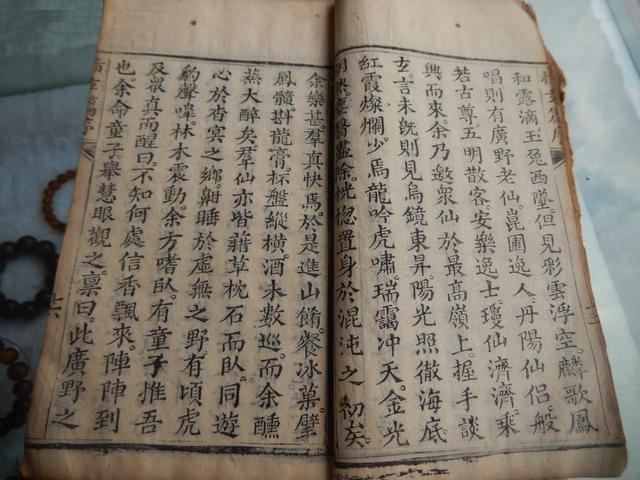 和露滴玉兔西墜但見彩雲浮空麟歌鳳
唱則有廣野老仙崑圃逸人丹陽仙侶般
若古尊五明散客安樂逸士瓊仙濟濟乘
興而來余乃邀眾仙於最高嶺上握手談
玄言未既則見烏鏡東昇陽光照徹海底
紅霞燦爛少焉龍吟虎嘯瑞靄冲天金光
盡除恍惚置身於混沌之初矣
余樂甚羣真快焉於是進山餚餐冰菓擘
鳳髓斟龍膏杯盤縱橫酒未數巡而余醺
蒸大醉矣羣仙亦皆藉草枕石而臥同遊
心於杳冥之鄉鼾睡於虛無之野有頃虎
豹聲嘷林木震動余方嗜臥有童子推吾
及眾真而醒曰不知何處信香飄來陣陣到
也余命童子舉慧眼觀之稟曰此廣野之